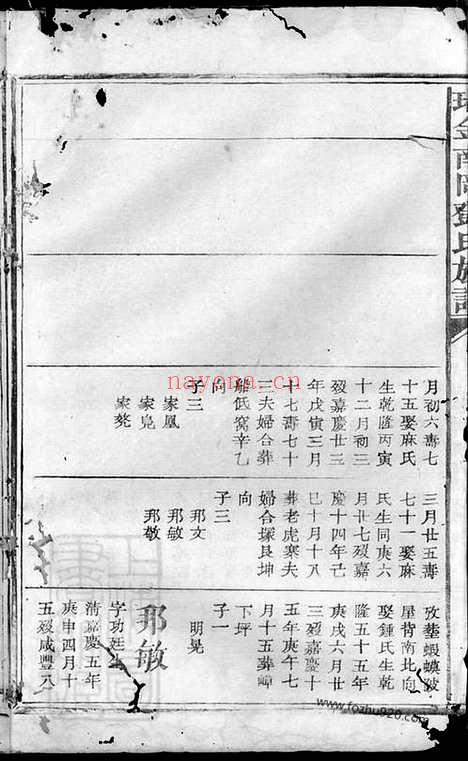 瑞金南門鄧氏族譜
月初六壽七
十五娶麻氏
生乾隆丙寅
十二月初三
歿嘉慶廿三
年戊寅三月
十七壽七十
三夫婦合葬
船低窩辛乙
向
子三
家鳳
家凫
家麂
三月廿五壽
七十一娶麻
氏生同庚六
月廿七歿嘉
慶十四年己
巳十月十八
葬老虎寨夫
婦合塚艮坤
向
子三
邦文
邦敏
邦敬
攷塟蝦蟆陂
屋背南北向
娶鍾氏生乾
隆五十五年
庚戌六月廿
三歿嘉慶十
五年庚午七
月十五葬嶂
下坪
子一
明晃
邦敏
字功廷
清嘉慶五年
庚申四月十
五歿咸豐八
nayona.cn
www.fozhu920.com